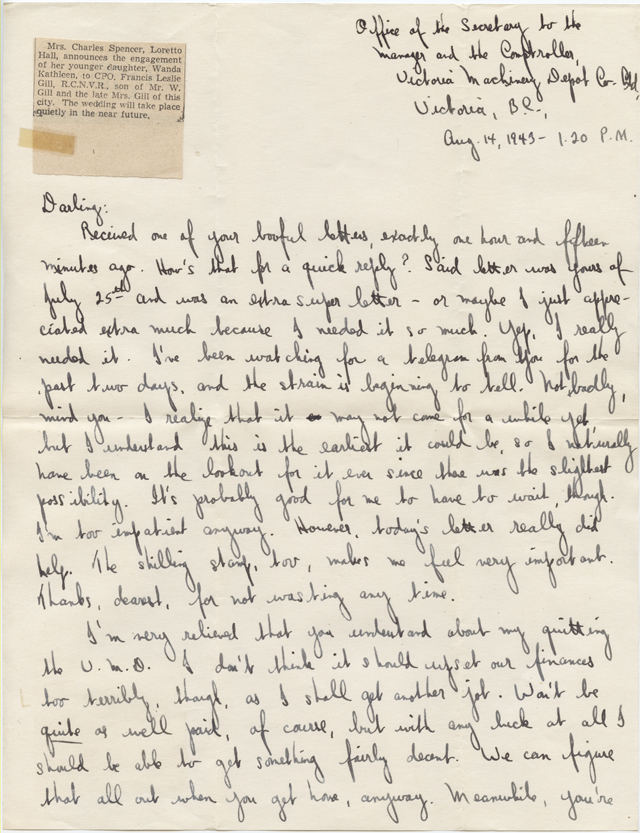 Mrs. Charles Spencer, Loretto
Hall, announces the engagement
of her younger daughter, Wanda
Kathleen, to CPO. Francis Leslie
Gill, R.C.N.V.R., son of Mr. W.
Gill and the late Mrs. Gill of this
city. The wedding will take place
quietly in the near future.
Office of the Secretary to the
manager and the Comptroller,
Victoria Machinery Depot Co. Ltd,
Victoria, B.C.,
Aug. 14, 1943 - 1.20 P.M.
Darling:
Received one of your booful letters, exactly one hour and fifteen
minutes ago. How's that for a quick reply? Said letter was yours of
July 25th and was an extra super letter - or maybe I just appre-
ciated extra much because I needed it so much. Yep, I really
needed it. I've been watching for a telegram from you for the
past two days, and the strain is beginning to tell. Not badly,
mind you - I realize that it may not come for a while yet,
but I understand this is the earliest it could be, so I naturally
have been on the lookout for it ever since there was the slightest
possibility. It's probably good for me to have to wait, though.
I'm too impatient anyway. However, today's letter really did
help. The shilling stamp, too, makes me feel very important.
Thanks, dearest, for not wasting any time.
I'm very relieved that you understand about my quitting
the V.M.D. I don't think it should upset our finances
too terribly, though, as I shall get another job. Won't be
quite as well paid, of course, but with any luck at all I
should be able to get something fairly decent. We can figure
that all out when you get home, anyway. Meanwhile, you're